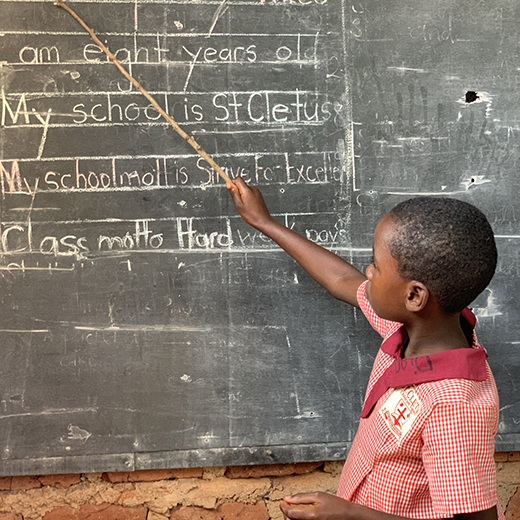 am eight years old
My school is St Cletus
My school moll is Strive For Excelle
Class motto Hard work pays